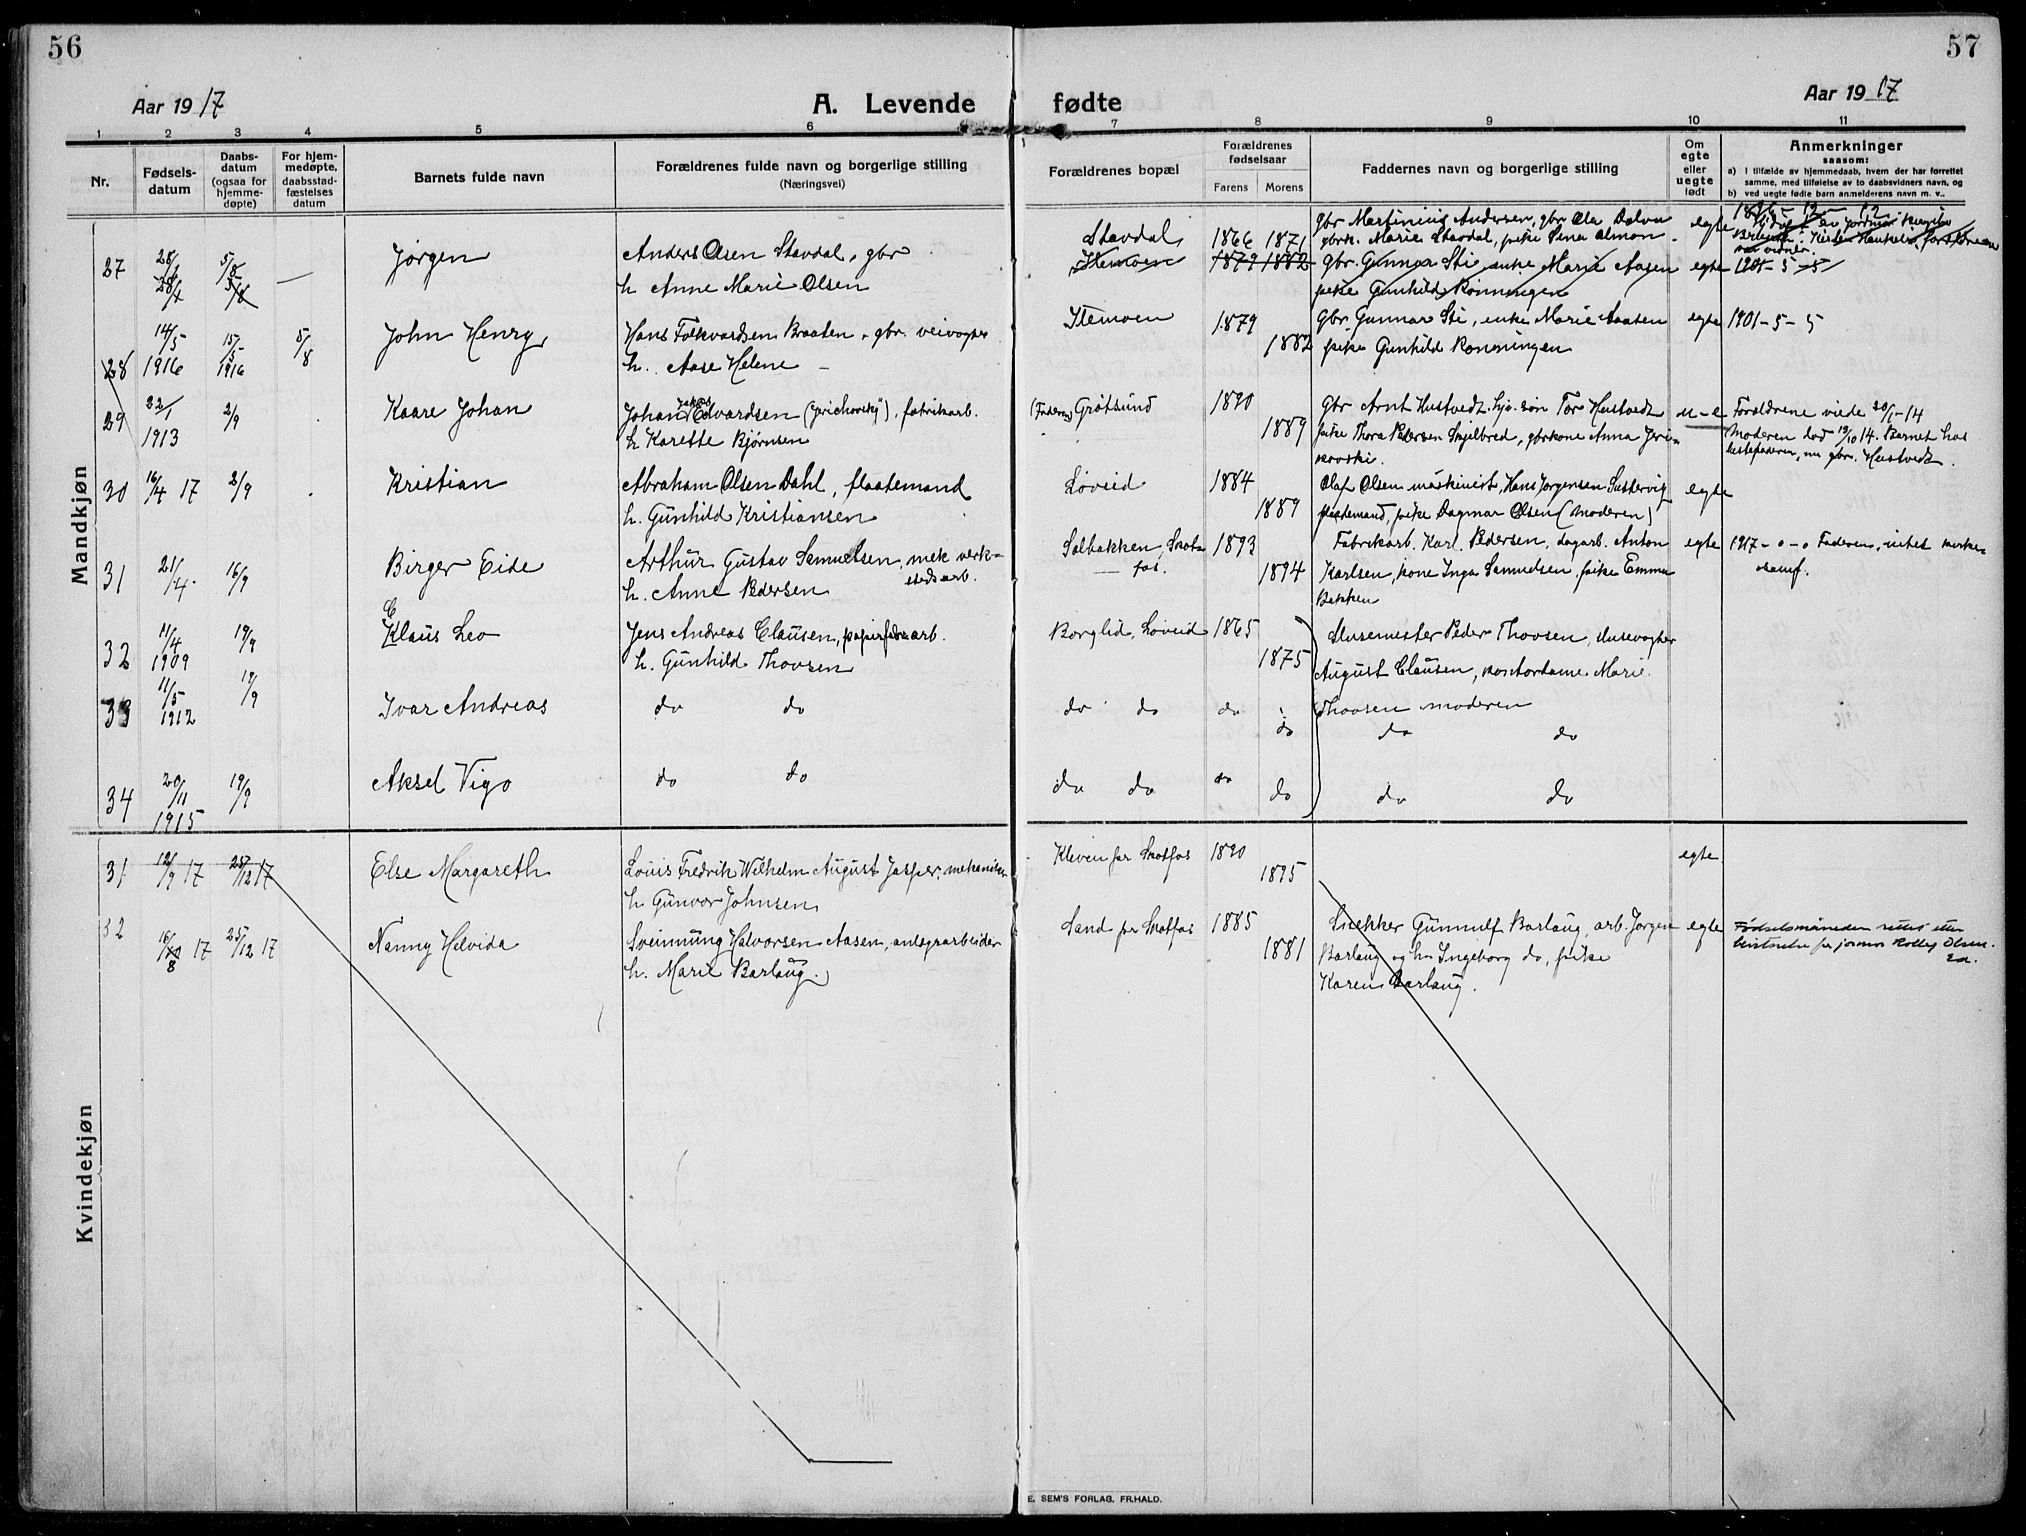 56
Aar 1917
A. Levende
1 2 3 4 5 6
Nr.
Fødsels-
datum
Daabs-
datum
(ogsaa for
hjemme-
døpte)
For hjem-
medøpte,
daabsstad-
fæstelses
datum
Barnets fulde navn
Forældrenes fulde navn og borgerlige stilling
(Næringsvei)
Mandkjøn
27 5/8 — Jørgen Anders Olsen Stavdal, gbr
h Anne Marie Olsen
28 14/5 1916 15/5 1916 5/8 John Henry, Hans Folkvardsen Braaten, gbr. veivogter
h. Aase Helene —
29 22/1 1913 2/9 Kaare Johan Johan Edvardsen ("Jerichovsky"), fabrikarb.
h Karette Bjørnsen
30 16/4 17 2/9 Kristian Abraham Olsen Dahl, flaatemand
h. Gunhild Kristiansen
31 21/4 16/9 Birger Eide Arthur Gustav Samuelsen, mek verk-
stedsarb.
h. Anne Pedersen
C
32 11/4 1909 19/9 Klaus Leo Jens Andreas Clausen, papirfabr arb.
h. Gunhild Thovsen
33 11/5 1912 19/9 Ivar Andreas do do
34 20/11 1915 19/9 Aksel Vigo do do
Kvindekjøn
31 12/9 17 25/12 17 Else Margareth Louis Fredrik Wilhelm August Jasper, mekaniker
h Gunvor Johnsen
32 16/8 17 25/12 17 Nanny Helvida Sveinung Halvorsen Aasen, anlegsarbeider
h. Marie Barlaug.
57
fødte
Aar 1917
7 8 9 10 11
Forældrenes bopæl
Forældrenes
fødselsaar
Farens Morens
Faddernes navn og borgerlige stilling
Om
egte
eller
uegte
født
Anmerkninger
saasom:
a) I tilfælde av hjemmedaab, hvem der har forrettet
samme, med tilføielse av to daabsvidners navn, og
b) ved uegte fødte barn anmelderens navn m. v..
Stavdal 1866 1871 gbr Martinius Andersen, gbr Ola Dalva egte
gbrk. Marie Stavdal, pike Lina Olmon.
Stemoen 1879 1882 gbr. Gunnar Sti enke Marie Aasen egte 1901-5-5
pike Gunhild Rønningen
Stemoen 1879 gbr. Gunnar Sti, enke Marie Aasen egte 1901-5-5
1882 pike Gunhild Rønningen
(Faderen) Grøtsund 1890 gbr Arnt Hustvedt, hjv. søn Tor Hustvedt u-e Forældrene viede 20/1-14
1889 pike Thora Pedersen Skjelbred, gbrkone Anna Jeri- Moderen død 19/10 14. Barnet hos
kovski. bestefaderen, nu gbr. Hustvedt.
Løveid 1884 Olaf Olsen maskinist, Hans Jørgensen egte
1889 flaatemand, pike Dagmar Olsen (moderen)
Solbakken, Skot- 1893 Fabrikarb. Karl Pedersen, dagarb. Anton egte 1917-0-0 Faderen, intet kirke-
fos. 1894 Karlsen, kone Inga Samuelsen, pike Emma samf.
Bakken
Borglid, Løveid 1865 Slusemester Peder Thovsen, slusevogter
1875 August Clausen, kontordame Marie
do do do do Thovsen moderen
do do
do do do do do do
Kleven pr Skotfos 1890 egte
1895
Sand pr Skotfos 1885 Snekker Gunnulf Barlaug, arb. Jørgen egte Fødselsmåneden rettet etter
1881 Barlaug og h. Ingeborg do, pike bevitnelse fra jormor Kolley Olsen.
Karen Barlaug.
E. SEM'S FORLAG, FR.HALD.